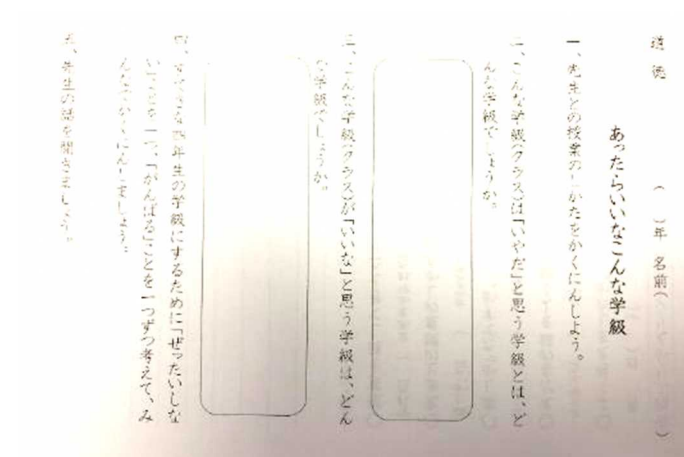 道徳 ( )年 名前( )
あったらいいなこんな学級
一、先生との授業のしかたをかくにんしよう。
二、こんな学級(クラス)は「いやだ」と思う学級とは、ど
んな学級でしょうか。
三、こんな学級(クラス)が「いいな」と思う学級は、どん
な学級でしょうか。
四、すてきな四年生の学級にするために「ぜったいしな
い」ことを一つ、「がんばる」ことを一つずつ考えて、み
んなでかくにんしましょう。
五、先生の話を聞きましょう。